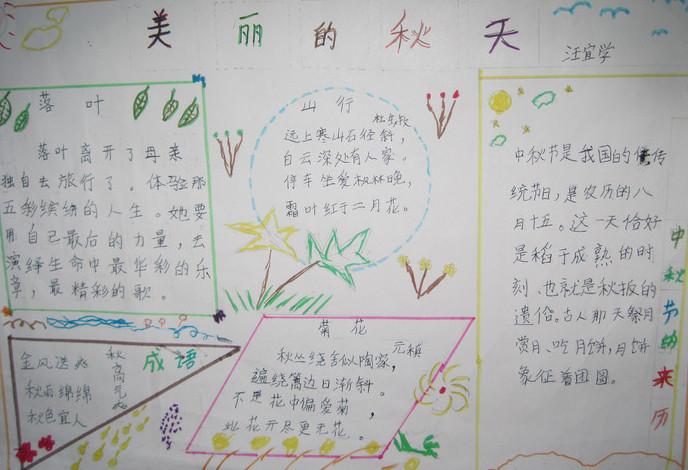 美丽的秋天
汪宜学
落叶
落叶离开了母亲
独自去旅行了。体验那
五彩缤纷的人生。她要
用自己最后的力量,去
演绎生命中最华彩的乐
章,最精彩的歌。
山行
杜牧
远上寒山石径斜,
白云深处有人家。
停车坐爱枫林晚,
霜叶红于二月花。
中秋节是我国的传
统节日,是农历的八
月十五。这一天恰好
是稻子成熟的时
刻、也就是秋报的
遗俗。古人那天祭月
赏月、吃月饼,月饼
象征着团圆。
中秋节的来历
成语
金风送爽
秋雨绵绵
秋色宜人
秋高气爽
菊花
元稹
秋丛绕舍似陶家,
遍绕篱边日渐斜。
不是花中偏爱菊,
此花开尽更无花。